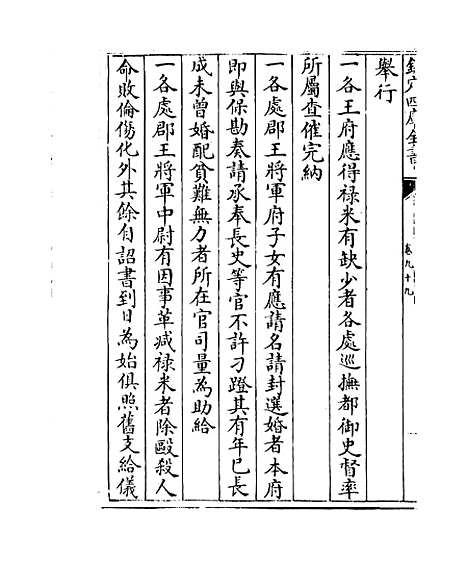 欽定四庫全書
卷九十九
舉行
一各王府應得祿米有缺少者各處巡撫都御史督率
所屬查催完納
一各處郡王將軍府子女有應請名請封選婚者本府
即與保勘奏請承奉長史等官不許刁蹬其有年已長
成未曾婚配貧難無力者所在官司量為助給
一各處郡王將軍中尉有因事革減祿米者除毆殺人
命敗倫傷化外其餘自詔書到日為始俱照舊支給儀